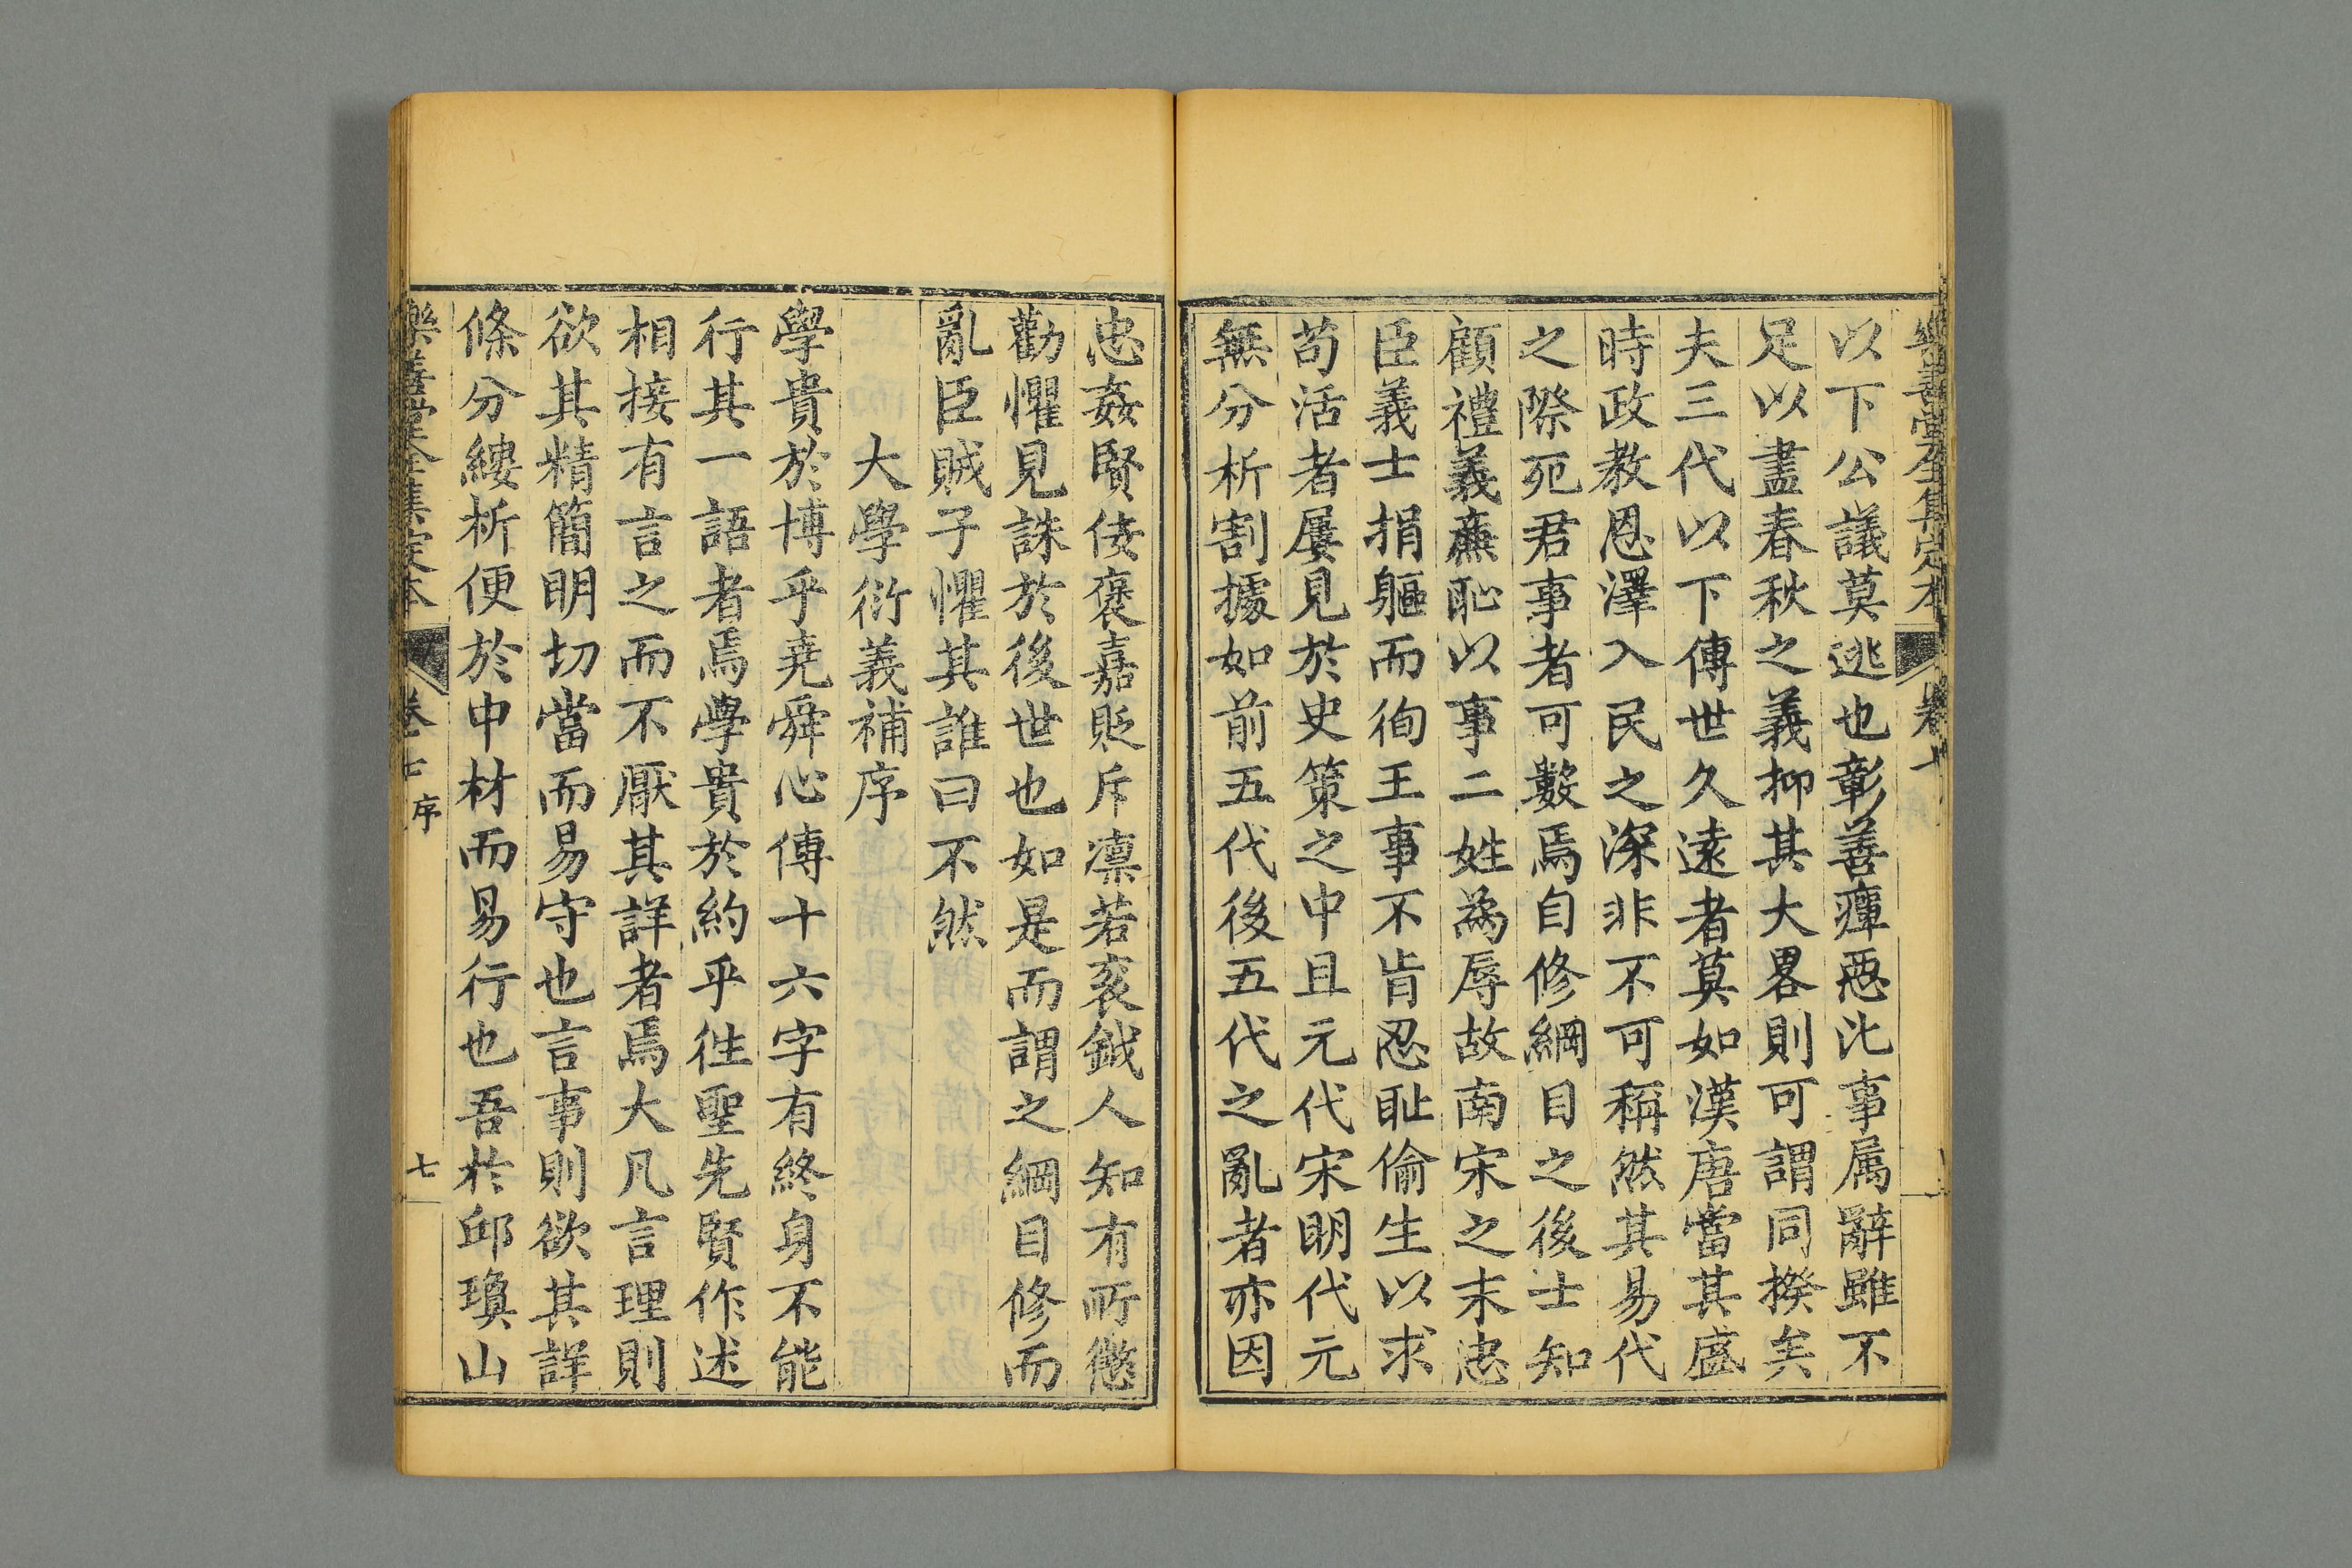 樂善堂全集定本 卷七
以下公議莫逃也彰善癉惡比事属辭雖不
足以盡春秋之義抑其大畧則可謂同揆矣
夫三代以下傳世久遠者莫如漢唐當其盛
時政教恩澤入民之深非不可稱然其易代
之際死君事者可數焉自修綱目之後士知
顧禮義廉恥以事二姓為辱故南宋之末忠
臣義士捐軀而徇王事不肯忍耻偷生以求
苟活者屢見於史策之中且元代宋明代元
無分析割據如前五代後五代之亂者亦因
忠姦賢佞褒嘉貶斥凛若衮鉞人知有所懲
勸懼見誅於後世也如是而謂之綱目修而
亂臣賊子懼其誰曰不然
大學衍義補序
學貴於博乎堯舜心傳十六字有終身不能
行其一語者焉學貴於約乎徃聖先賢作述
相接有言之而不厭其詳者焉大凡言理則
欲其精簡明切當而易守也言事則欲其詳
條分縷析便於中材而易行也吾於邱瓊山
樂善堂全集定本 卷七 序 七